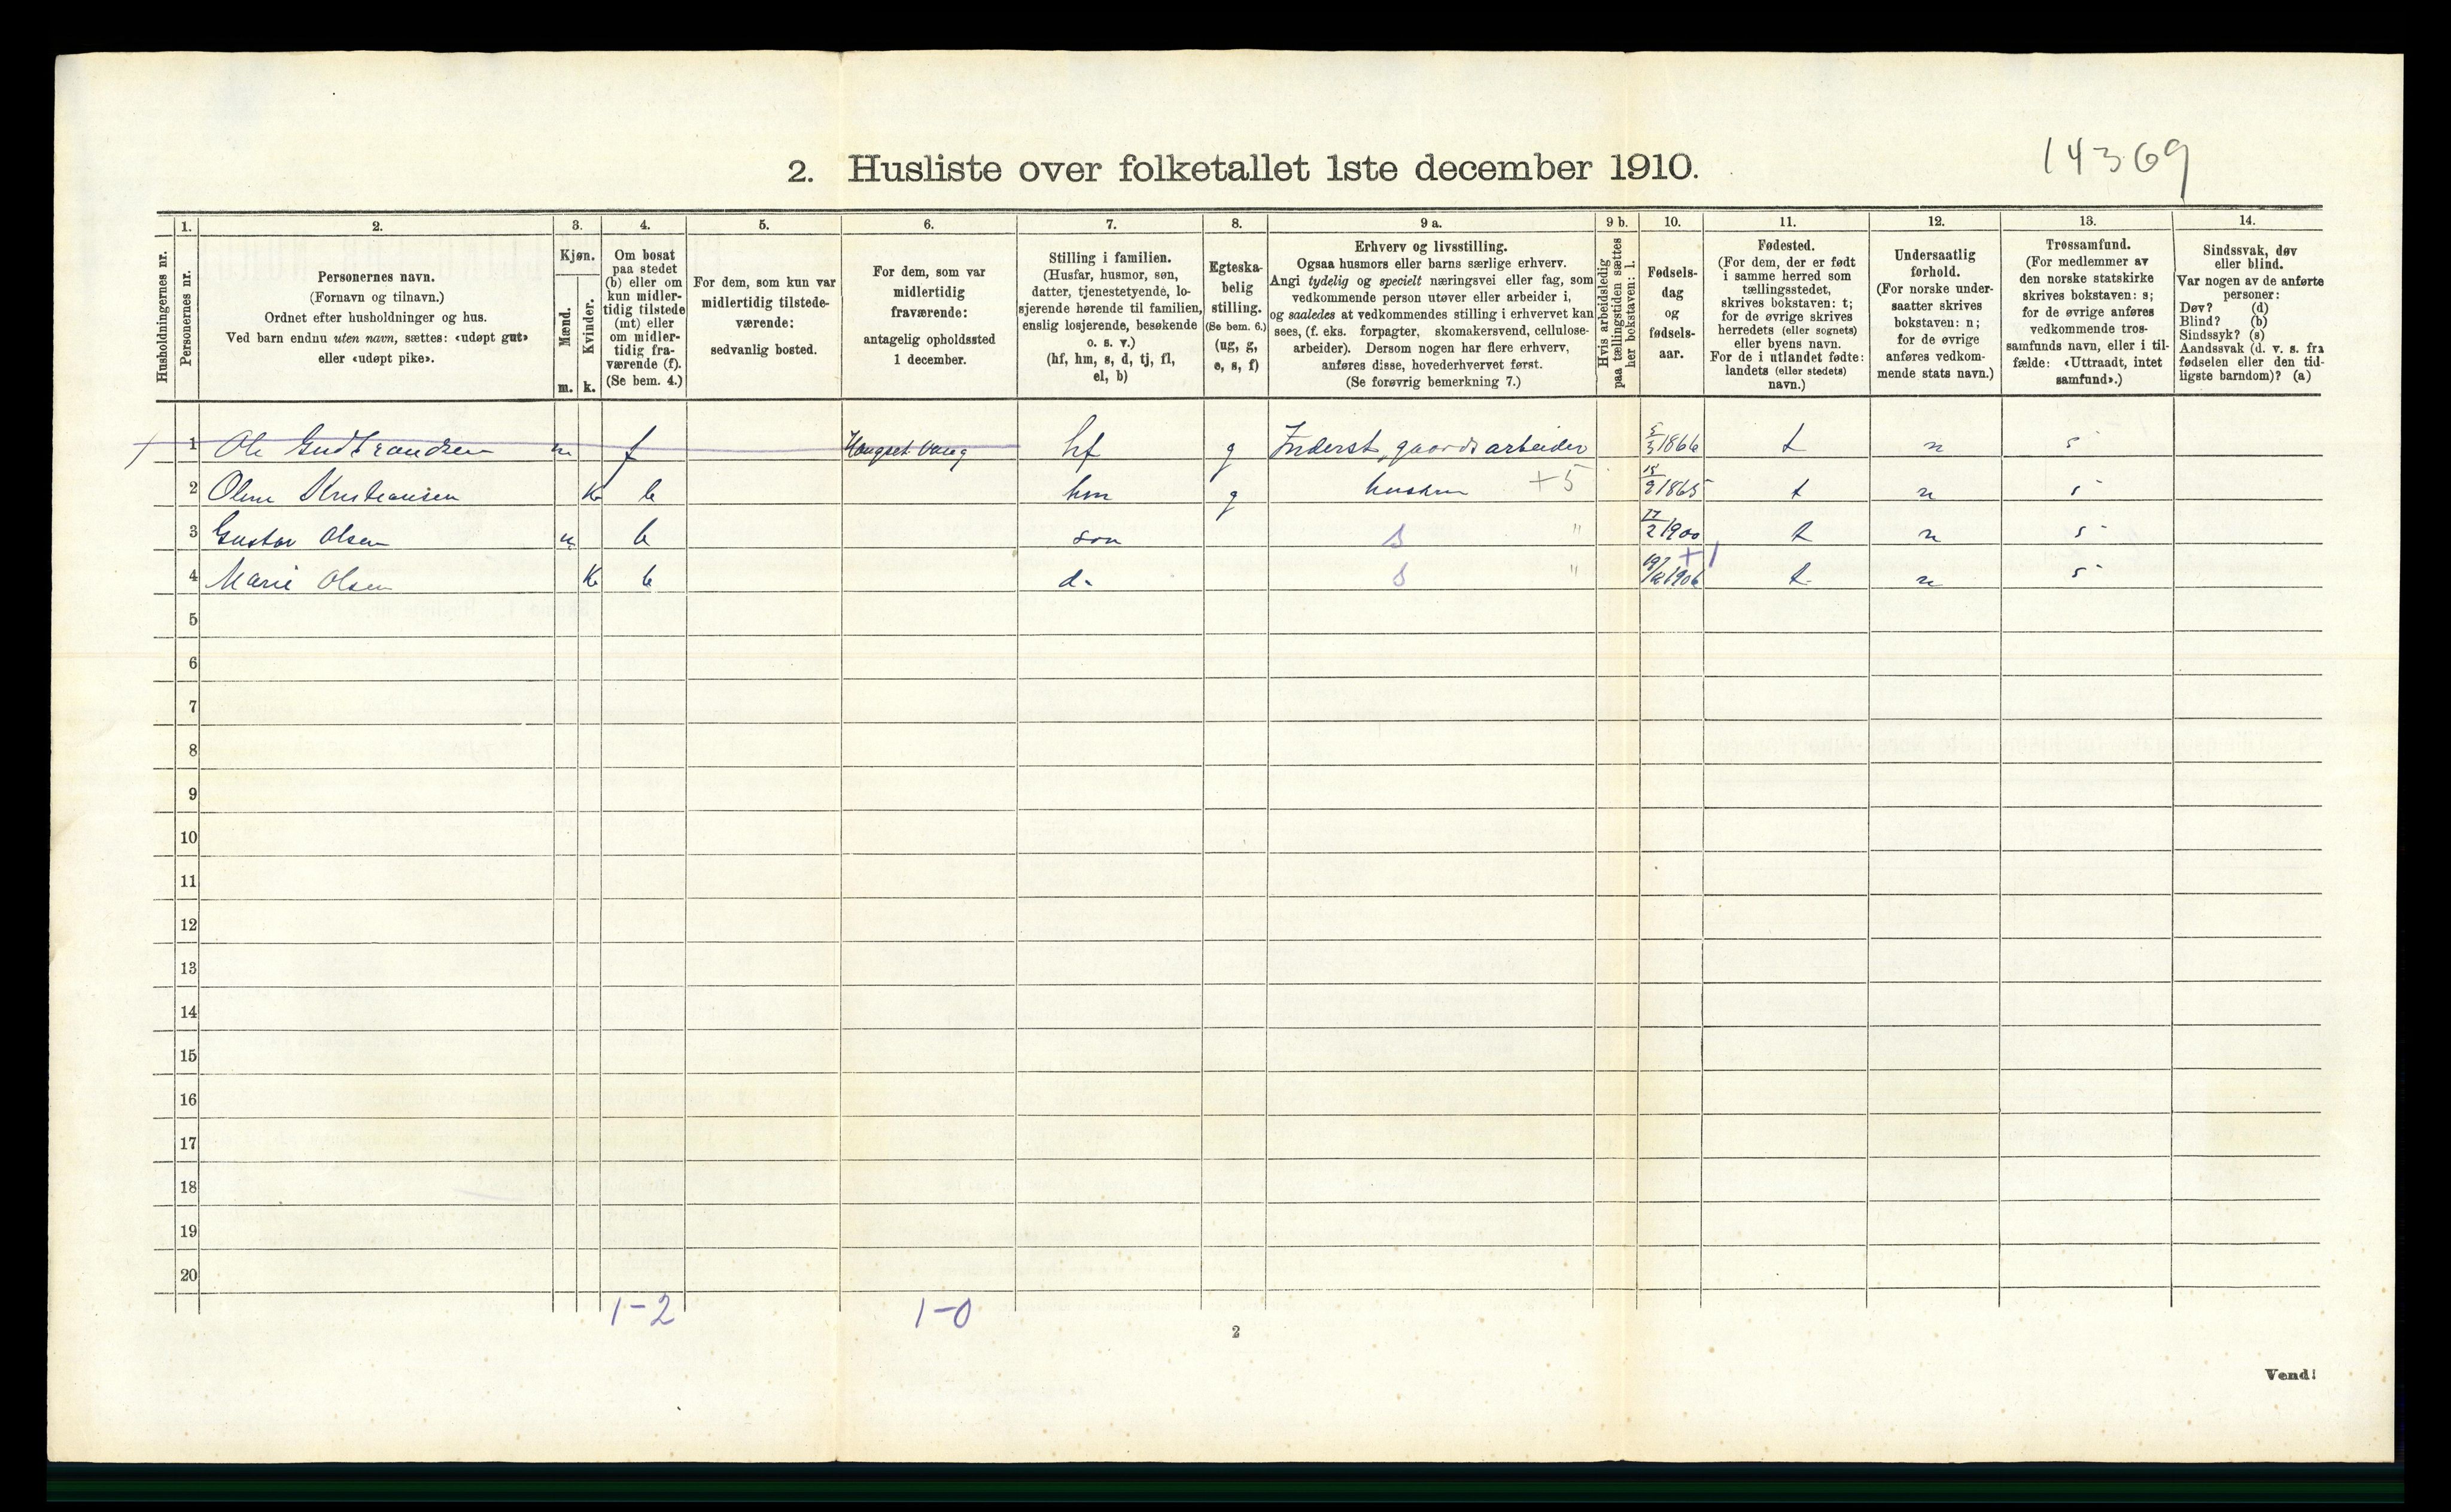 14369
2. Husliste over folketallet 1ste december 1910.
Husholdningernes nr.
1.
Personernes nr.
2.
Personernes navn.
(Fornavn og tilnavn.)
Ordnet efter husholdninger og hus.
Ved barn endnu uten navn, sættes: «udøpt gut»
eller «udøpt pike».
3.
Kjøn.
Mænd.
m.
Kvinder.
k.
4.
Om bosat
paa stedet
(b) eller om
kun midler-
tidig tilstede
(mt) eller
om midler-
tidig fra-
værende (f).
(Se bem. 4.)
5.
For dem, som kun var
midlertidig tilstede-
værende:
sedvanlig bosted.
6.
For dem, som var
midlertidig
fraværende:
antagelig opholdssted
1 december.
7.
Stilling i familien.
(Husfar, husmor, søn,
datter, tjenestetyende, lo-
sjerende hørende til familien,
enslig losjerende, besøkende
o. s. v.)
(hf, hm, s, d, tj, fl,
el, b)
8.
Egteska-
belig
stilling.
(Se bem. 6.)
(ug, g,
e, s, f)
9 a.
Erhverv og livsstilling.
Ogsaa husmors eller barns særlige erhverv.
Angi tydelig og specielt næringsvei eller fag, som
vedkommende person utøver eller arbeider i,
og saaledes at vedkommendes stilling i erhvervet kan
sees, (f. eks. forpagter, skomakersvend, cellulose-
arbeider). Dersom nogen har flere erhverv,
anføres disse, hovederhvervet først.
(Se forøvrig bemerkning 7.)
9 b.
Hvis arbeidsledig
paa tællingstiden sættes
her bokstaven: l.
10.
Fødsels-
dag
og
fødsels-
aar.
11.
Fødested.
(For dem, der er født
i samme herred som
tællingsstedet,
skrives bokstaven: t;
for de øvrige skrives
herredets (eller sognets)
eller byens navn.
For de i utlandet fødte:
landets (eller stedets)
navn.)
12.
Undersaatlig
forhold.
(For norske under-
saatter skrives
bokstaven: n;
for de øvrige
anføres vedkom-
mende stats navn.)
13.
Trossamfund.
(For medlemmer av
den norske statskirke
skrives bokstaven: s;
for de øvrige anføres
vedkommende tros-
samfunds navn, eller i til-
fælde: «Uttraadt, intet
samfund».)
14.
Sindssvak, døv
eller blind.
Var nogen av de anførte
personer:
Døv? (d)
Blind? (b)
Sindssyk? (s)
Aandssvak (d. v. s. fra
fødselen eller den tid-
ligste barndom)? (a)
1 Ole Gudbrandsen m f Vang hf g Inderst, gaardsarbeider 1866 t n s
2 Oline Kristiansen k b hm g hustru +5 15/9 1865 t n s
3 Gustav Olsen m b søn s " 17/2 1900 t n s
+1
4 Marie Olsen k b d. s " 1906 t n s
5
6
7
8
9
10
11
12
13
14
15
16
17
18
19
20
1-2 1-0
2
Vend!